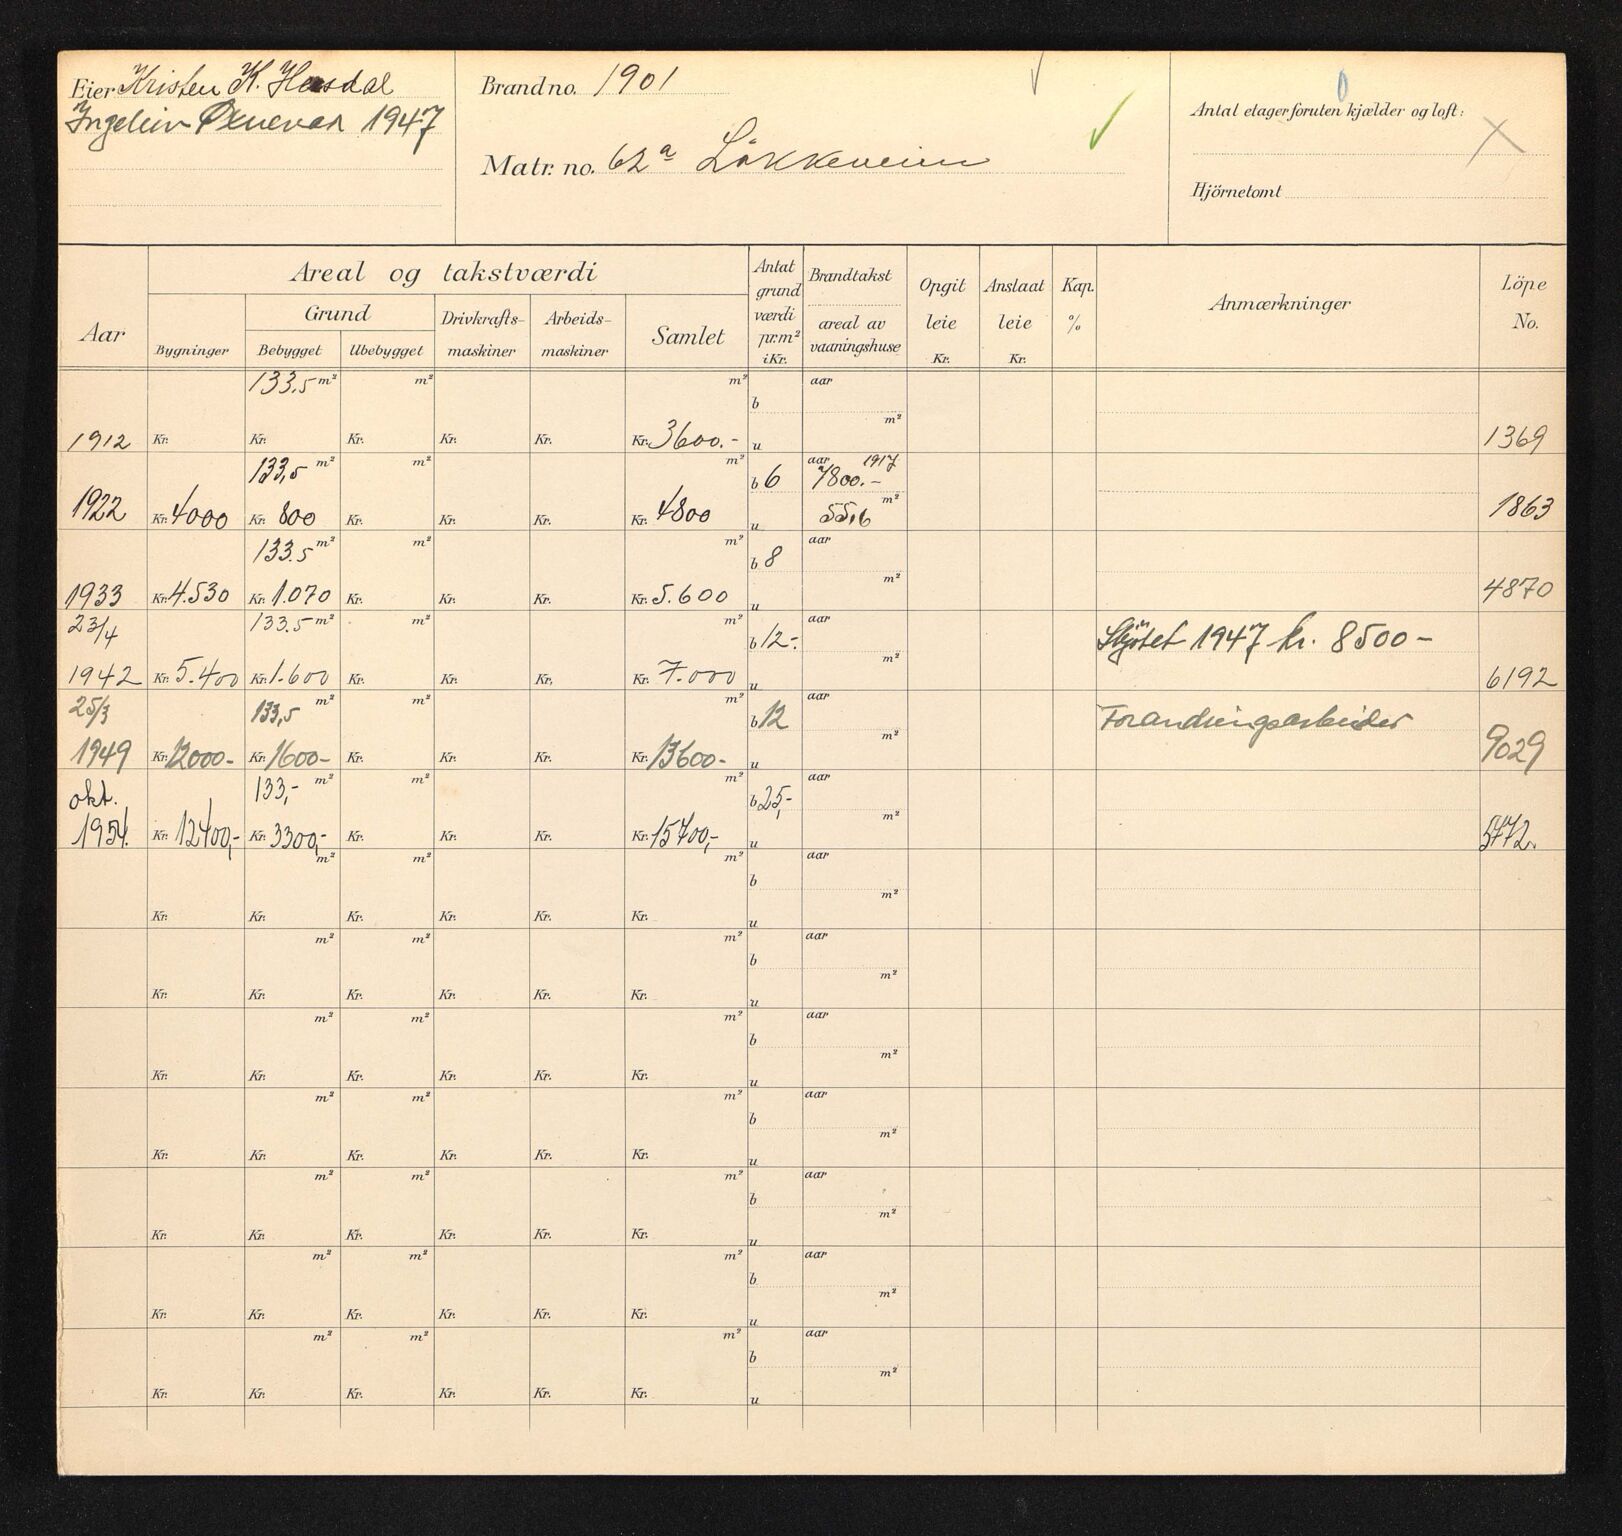 Eier Kristen K. Hasdal
1947
Brandno. 1901
Matr. no. 62a Lökkeveien
0
Antal etager foruten kjælder og loft:
Hjörnetomt
Aar
Areal og takstværdi
Bygninger
Grund
Bebygget
Ubebygget
Drivkrafts-
maskiner
Arbeids-
maskiner
Samlet
Antat
grund
værdi
pr.m²
i Kr.
Brandtakst
areal av
vaaningshuse
Opgit
leie
Kr.
Anslaat
leie
Kr.
Kap.
%
Anmærkninger
Löpe
No.
133.5 m² m² m² b aar
m²
1912 Kr. Kr. Kr. Kr. Kr. Kr. 3600.- u 1369
133,5 m² m² m² b 6 aar 1917
7800.-
m²
1922 Kr. 4000 Kr. 800 Kr. Kr. Kr. Kr. 4800 u 55,6 1863
133.5 m² m² m² b 8 aar
m²
1933 Kr. 4.530 Kr. 1.070 Kr. Kr. Kr. Kr. 5.600 u 4870
23/4 133.5 m² m² m² b 12-. aar Skjötet 1947 kr. 8500-
m²
1942 Kr. 5.400 Kr. 1.600 Kr. Kr. Kr. Kr. 7.000 u 6192
25/3 133,5 m² m² m² b 12 aar Forandringsarbeider
m²
1949 Kr. 12000- Kr. 1600- Kr. Kr. Kr. Kr. 13600- u 9029
okt. 133,- m² m² m² b 25,- aar
m²
1954. Kr. 12400,- Kr. 3300,- Kr. Kr. Kr. Kr. 15700,- u 5772.
m² m² m² b aar
m²
Kr. Kr. Kr. Kr. Kr. Kr. u
m² m² m² b aar
m²
Kr. Kr. Kr. Kr. Kr. Kr. u
m² m² m² b aar
m²
Kr. Kr. Kr. Kr. Kr. Kr. u
m² m² m² b aar
m²
Kr. Kr. Kr. Kr. Kr. Kr. u
m² m² m² b aar
m²
Kr. Kr. Kr. Kr. Kr. Kr. u
m² m² m² b aar
m²
Kr. Kr. Kr. Kr. Kr. Kr. u
m² m² m² b aar
m²
Kr. Kr. Kr. Kr. Kr. Kr. u